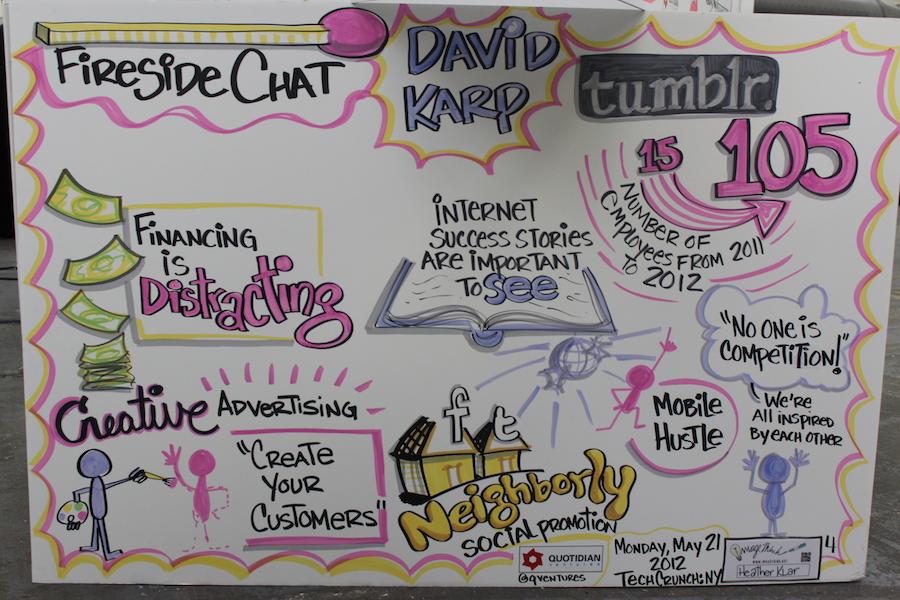 Fireside Chat
David
Karp
tumblr.
15
105
Number of
Employees from 2011
to 2012
Financing
is
Distracting
Internet
Success Stories
are important
to see
"No one is
competition!"
We're
all inspired
by each other
Mobile
Hustle
Creative Advertising
"Create
your
customers"
f
t
Neighborly
social promotion
QUOTIDIAN
ventures
@qventures
Monday, May 21
2012
TechCrunch:NY
ImageThink
Heather Klar
4